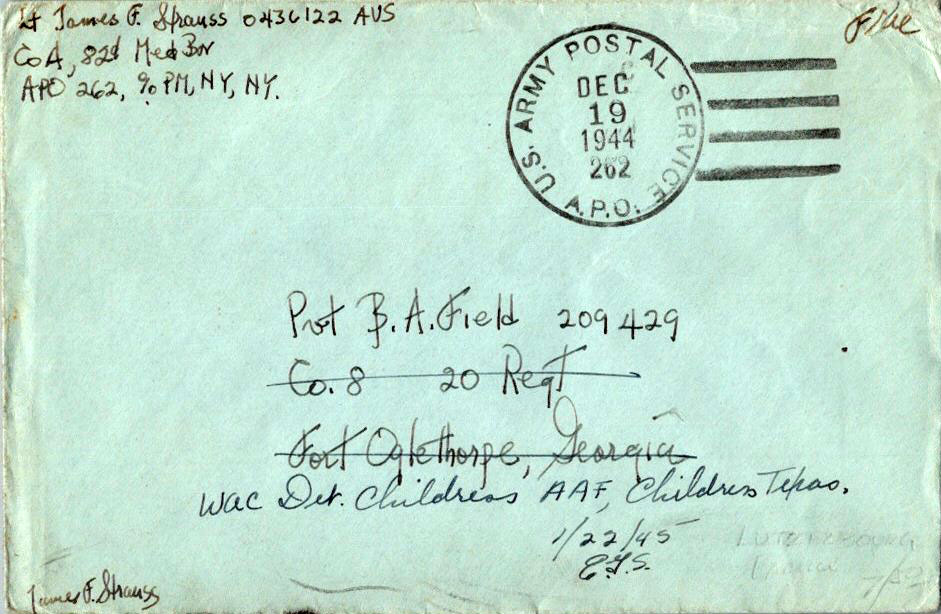 Lt James F. Strauss 0436122 AUS
Co A, 82d Med Bn
APO 262, % PM, NY, NY.
Free
U.S. ARMY POSTAL SERVICE
DEC
19
1944
262
A.P.O.
Pvt B. A. Field 209429
Co. 8 20 Regt
Fort Oglethorpe, Georgia
WAC Det. Childress AAF, Childress Texas.
1/22/45
E.G.S.
James F. Strauss